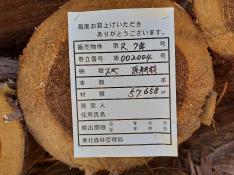 毎度お買上げいただき
ありがとうございます。
販売物件 第 R.7年 号
巻立番号 第 002004 号
樹種
本数 本
材積 57.658 m³
買受人
住所氏名
搬出期限 年 月 日
東北森林管理局